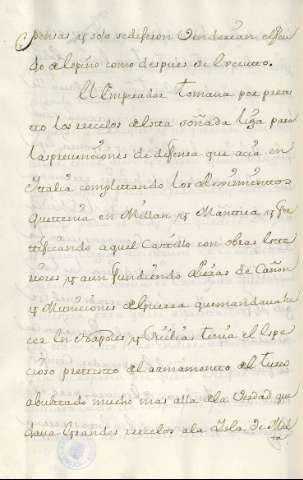 pensas y solo se dijeron Venderian el feu
do
como despues se
El Emperador tomava por pretes
to los recelos de esta soñada Liga para
las prevenciones de defensa que acia en
Italia completando los
que tenia en Millan y Mantua y for
tificando aquel Castillo con obras exte
riores y aun fundiendo Piezas de Cañon
y Municiones de Guerra que mandava ha
cer En Napoles y Sicilia tenia el Espe
cioso pretexto del armamento del turco
abultado mucho mas alla de la Verdad que
dava Grandes recelos a la Isla de Mal
ta